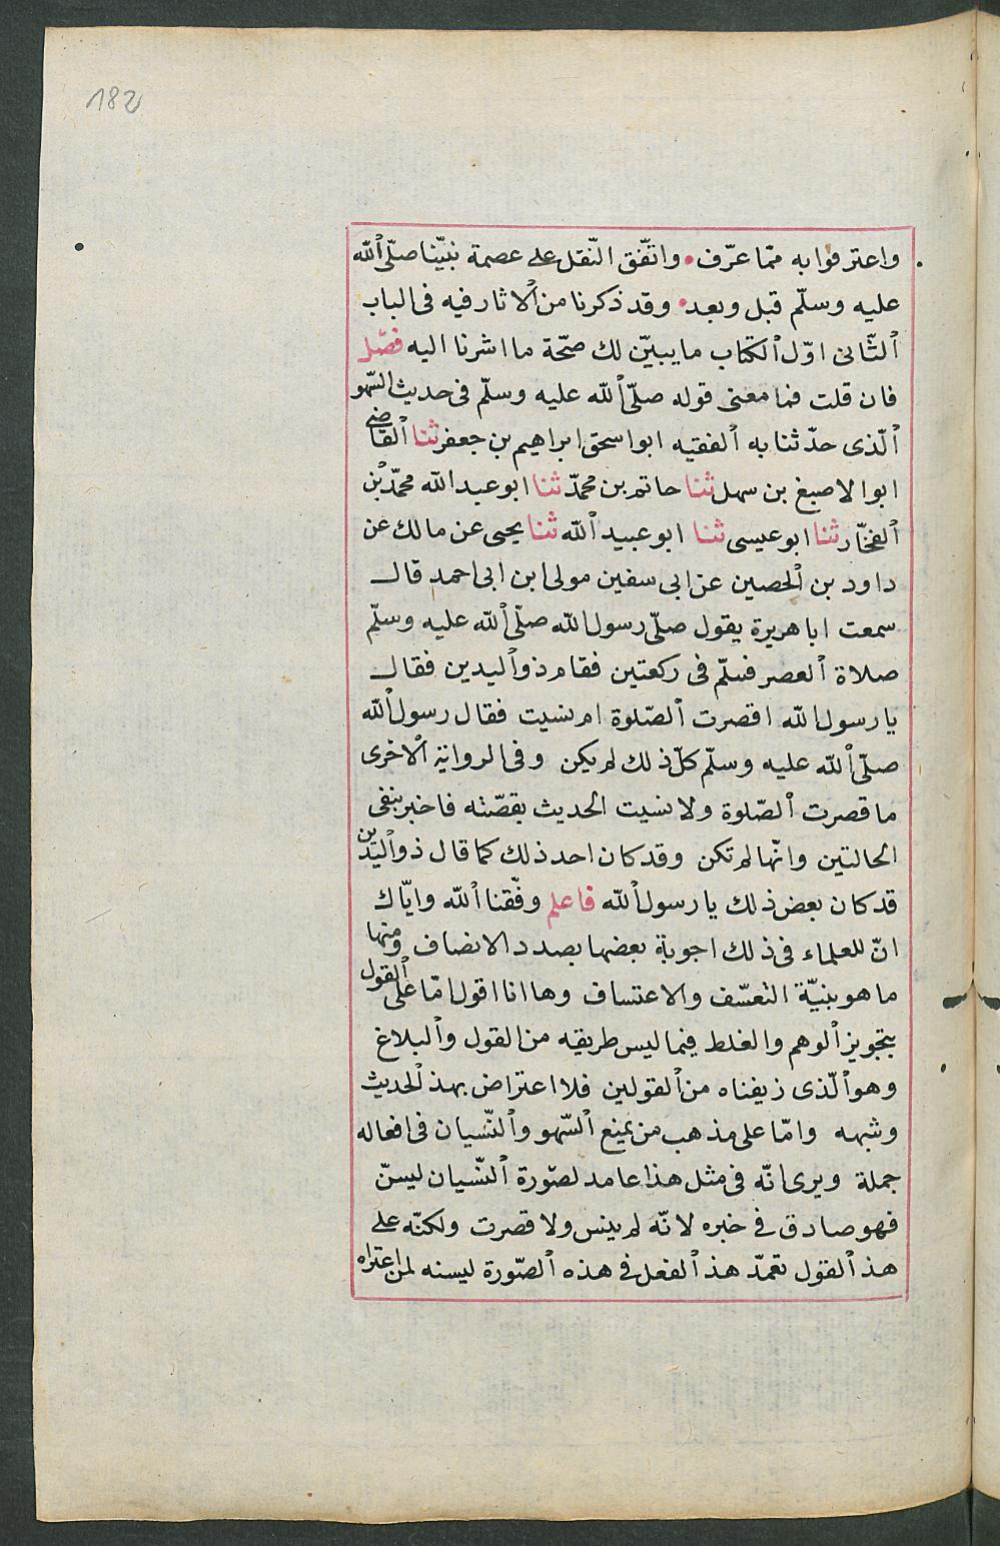 182
واعترفوا به ممّا عرّف • واتّفق النّقل على عصمة نبيّنا صلّى الله
عليه وسلّم قبل وبعد • وقد ذكرنا من الاثار فيه فى الباب
الثّانى اوّل الكتاب ما يبيّن لك صحّة ما اشرنا اليه فصل
فان قلت فما معنى قوله صلّى الله عليه وسلّم فى حديث السّهو
الّذى حدّثنا به الفقيه ابو اسحق ابراهيم بن جعفر ثنا القاضى
ابو الاصبغ بن سهل ثنا حاتم بن محمّد ثنا ابو عبد الله محمّد بن
الفخّار ثنا ابو عيسى ثنا ابو عبيد الله ثنا يحيى عن مالك عن
داود بن الحصين عن ابى سفين مولى ابن ابى احمد قال
سمعت ابا هريرة يقول صلّى رسول الله صلّى الله عليه وسلّم
صلاة العصر فسلّم فى ركعتين فقام ذو اليدين فقال
يا رسول الله اقصرت الصّلوة ام نسيت فقال رسول الله
صلّى الله عليه وسلّم كلّ ذلك لم يكن وفى الرواية الاخرى
ما قصرت الصّلوة ولا نسيت الحديث بقصّته فاخبر بنفى
الحالتين وانّها لم تكن وقد كان احد ذلك كما قال ذو اليدين
قد كان بعض ذلك يا رسول الله فاعلم وفّقنا الله وايّاك
انّ للعلماء فى ذلك اجوبة بعضها بصدد الانصاف ومنها
ما هو بنيّة التعسّف والاعتساف وها انا اقول امّا على القول
بتجويز الوهم والغلط فيما ليس طريقه من القول والبلاغ
وهو الّذى زيفناه من القولين فلا اعتراض بهذ الحديث
وشبهه وامّا على مذهب من يمنع السّهو والنّسيان فى افعاله
جملة ويرى انّه فى مثل هذا عامد لصّورة النّسيان ليسنّ
فهو صادق فى خبره لانّه لم ينس ولا قصرت ولكنّه على
هذ القول تعمّد هذ الفعل فى هذه الصّورة ليسنه لمن اعتراه